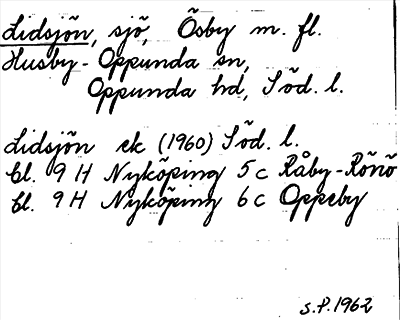 Lidsjön, sjö, Ösby m. fl.
Husby-Oppunda sn,
Oppunda hd, Söd. l.
Lidsjön ek (1960) Söd. l.
bl. 9 H Nyköping 5c Råby-Rönö
bl. 9 H Nyköping 6c Oppeby
S.P. 1962